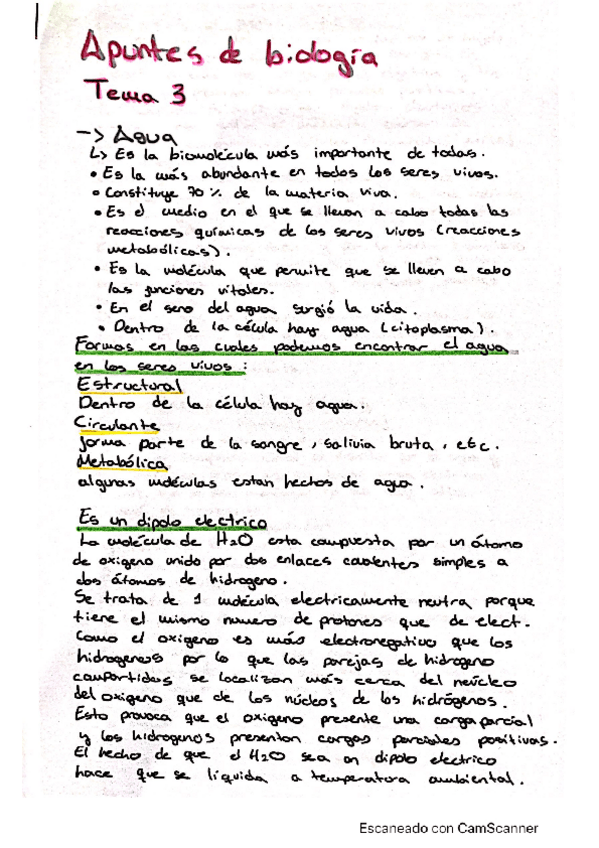 Apuntes de biología
Tema 3
-> Agua
↳ Es la biomolécula más importante de todas.
• Es la más abundante en todos los seres vivos.
• Constituye 70% de la materia viva.
• Es el medio en el que se llevan a cabo todas las
reacciones químicas de los seres vivos (reacciones
metabólicas).
• Es la molécula que permite que se lleven a cabo
las funciones vitales.
• En el seno del agua surgió la vida.
• Dentro de la célula hay agua (citoplasma).
Formas en las cuales podemos encontrar el agua
en los seres vivos:
Estructural
Dentro de la célula hay agua.
Circulante
forma parte de la sangre, salivia bruta, etc.
Metabólica
algunas moléculas estan hechos de agua.
Es un dipolo electrico
La molécula de H2O esta compuesta por un átomo
de oxigeno unido por dos enlaces covalentes simples a
dos átomos de hidrogeno.
Se trata de 1 molécula electricamente neutra porque
tiene el mismo numero de protones que de elect.
Como el oxigeno es más electronegativo que los
hidrogenos por lo que las parejas de hidrogeno
compartidas se localizan más cerca del núcleo
del oxigeno que de los núcleos de los hidrógenos.
Esto provoca que el oxigeno presente una carga parcial
y los hidrogenos presentan cargas parciales positivas.
El hecho de que el H2O sea un dipolo electrico
hace que se líquida a temperatura ambiental.
Escaneado con CamScanner